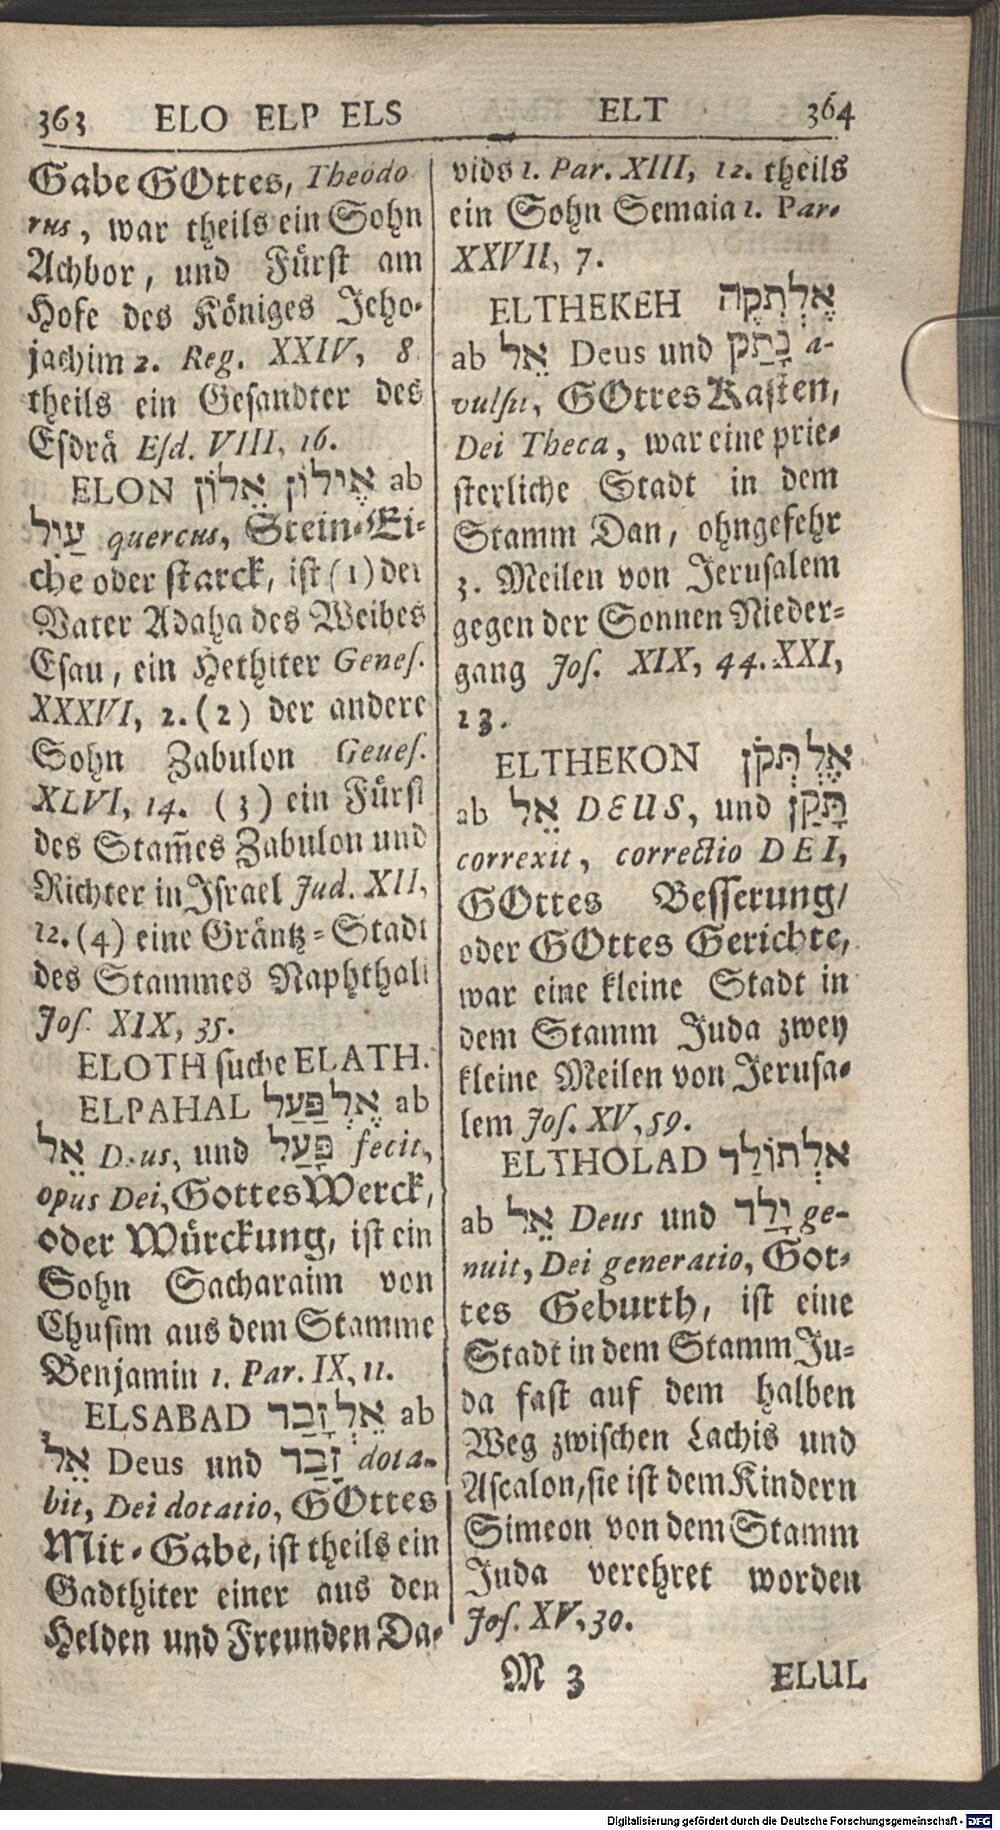 363 ELO ELP ELS
Gabe GOttes, Theodo
rus, war theils ein Sohn
Achbor, und Fürst am
Hofe des Königes Jeho-
jachim 2. Reg. XXIV, 8
theils ein Gesandter des
Esdrä Esd. VIII, 16.
ELON אֵלוֹן אֶילוֹן ab
עַיִל quercus, Stein-Ei-
che oder starck, ist (1) der
Vater Adaha des Weibes
Esau, ein Hethiter Genes.
XXXVI, 2. (2) der andere
Sohn Zabulon Geues.
XLVI, 14. (3) ein Fürst
des Stam̃es Zabulon und
Richter in Israel Jud. XII,
12. (4) eine Gräntz-Stadt
des Stammes Naphthali
Jos. XIX, 35.
ELOTH suche ELATH.
ELPAHAL אֶלְפַּעַל ab
אֵל Deus, und פָּעַל fecit,
opus Dei, Gottes Werck,
oder Würckung, ist ein
Sohn Sacharaim von
Chusim aus dem Stamme
Benjamin 1. Par. IX, 11.
ELSABAD אֵלְזָבַד ab
אֵל Deus und זָבַד dota-
bit, Dei dotatio, GOttes
Mit-Gabe, ist theils ein
Gadthiter einer aus den
Helden und Freunden Da-
ELT 364
vids 1. Par. XIII, 12. theils
ein Sohn Semaia 1. Par.
XXVII, 7.
ELTHEKEH אֶלְתְּקֵה
ab אֵל Deus und נָתַק a-
vulsit, GOttes Kasten,
Dei Theca, war eine prie-
sterliche Stadt in dem
Stamm Dan, ohngefehr
3. Meilen von Jerusalem
gegen der Sonnen Nieder-
gang Jos. XIX, 44. XXI,
23.
ELTHEKON אֶלְתְּקֹן
ab אֵל DEUS, und תָּקַן
correxit, correctio DEI,
GOttes Besserung/
oder GOttes Gerichte,
war eine kleine Stadt in
dem Stamm Juda zwey
kleine Meilen von Jerusa-
lem Jos. XV, 59.
ELTHOLAD אֶלְתּוֹלַד
ab אֵל Deus und יָלַד ge-
nuit, Dei generatio, Got-
tes Geburth, ist eine
Stadt in dem Stamm Ju-
da fast auf dem halben
Weg zwischen Lachis und
Ascalon, sie ist dem Kindern
Simeon von dem Stamm
Juda verehret worden
Jos. XV, 30.
M 3 ELUL
Digitalisierung gefördert durch die Deutsche Forschungsgemeinschaft - DFG